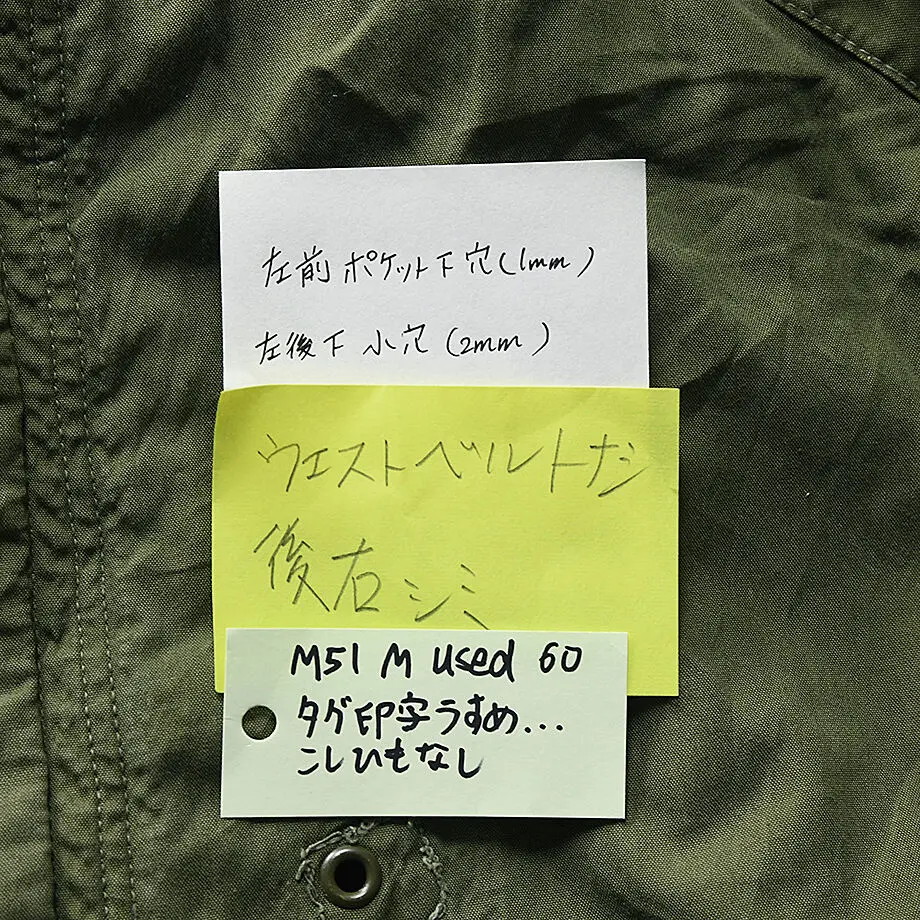 左前ポケット下穴(1mm)
左後下 小穴(2mm)
ウエストベルトナシ
後右シミ
M51 M used 60
タグ印字うすめ...
こしひもなし